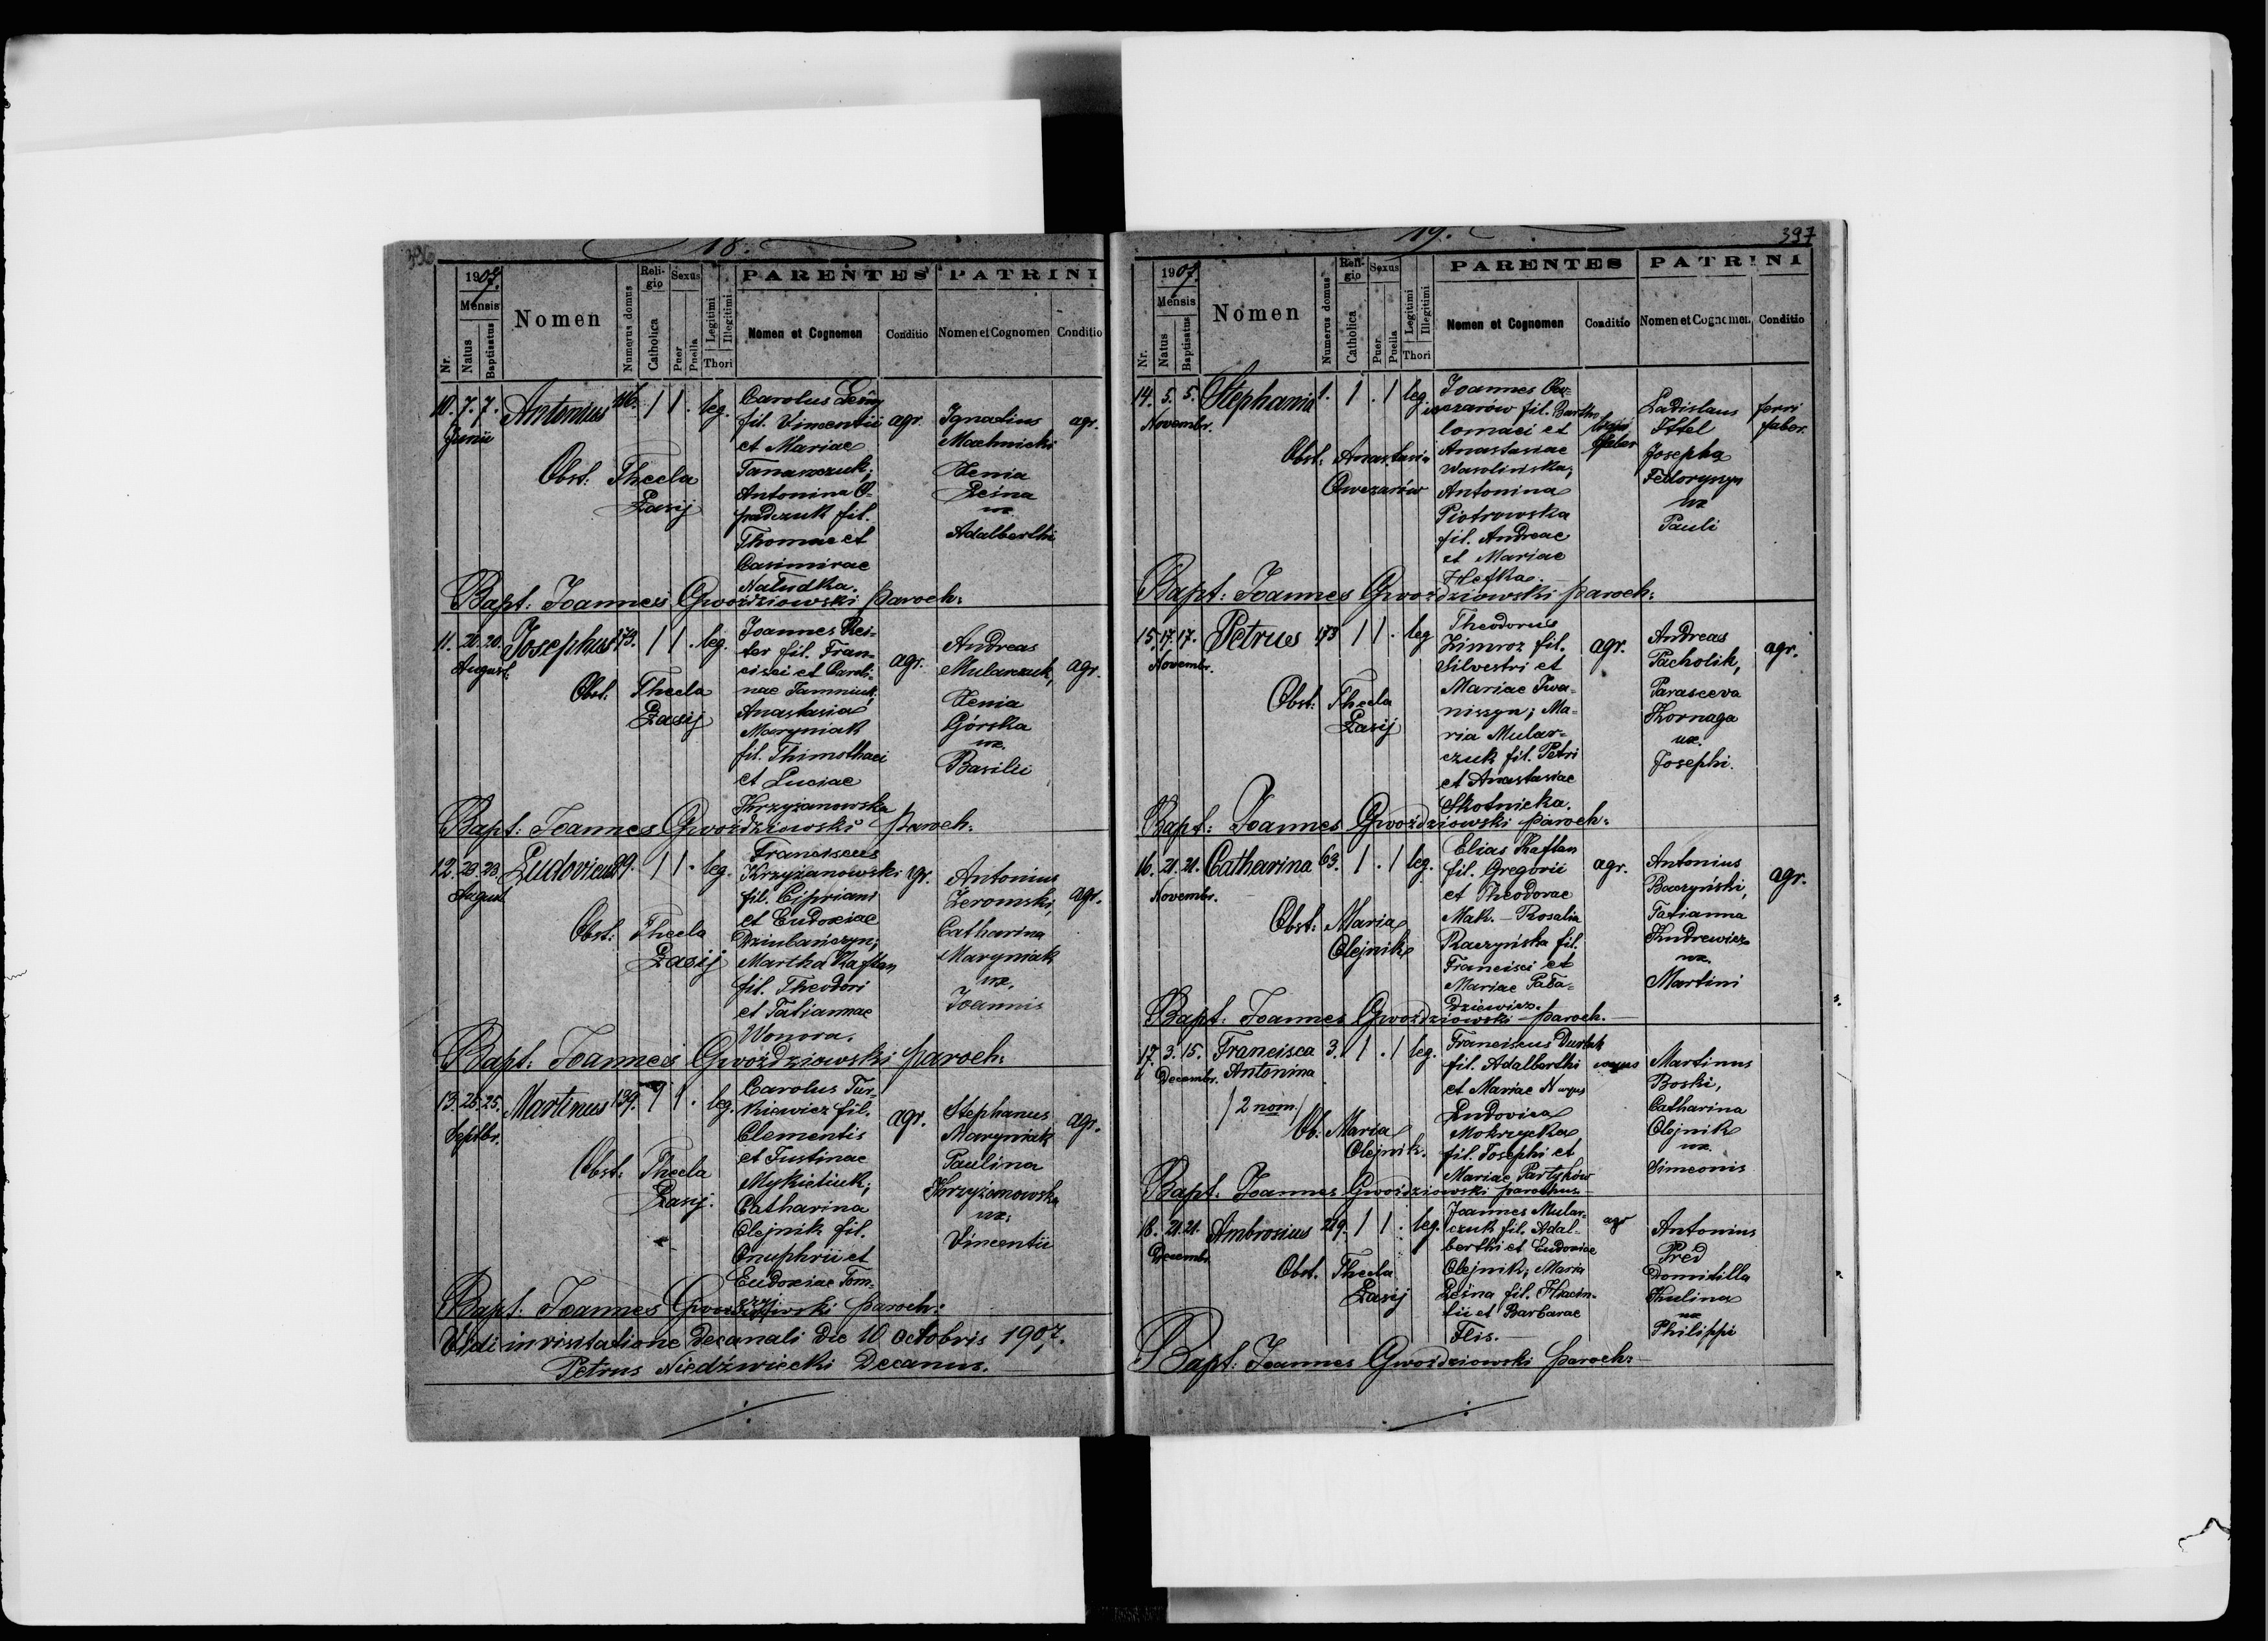 396
18.
1907.
Mensis
Nr.
Natus
Baptisatus
Nomen
Numerus domus
Religio
Catholica
Sexus
Puer
Puella
Legitimi
Illegitimi
Thori
PARENTES
Nomen et Cognomen
Conditio
PATRINI
Nomen et Cognomen
Conditio
10. 7. 7. Antonius 1 1 . leg.
Junii
Obst: Thecla
Zasij
Carolus Leśny
fil. Vincentii agr.
et Mariae
Tanaszczuk;
Antonina O-
padczuk fil.
Thomae et
Casimirae
Natudka.
Ignatius agr.
Machnicki
Xenia
Leśna
ux.
Adalberthi
Bapt: Joannes Gwoździowski paroch:
11. 20. 20. Josephus 173. 1 1 . leg.
August.
Obst: Thecla
Zasij
Joannes Rei-
ter fil. Fran-
cisci et Caroli- agr.
nae Jamniuk;
Anastasia
Maryniak
fil. Thimothaei
et Luciae
Krzyżanowska
Andreas
Mularczuk, agr.
Xenia
Górska
ux.
Basilii
Bapt: Joannes Gwoździowski paroch:
12. 23. 23. Ludovicus 99. 1 1 . leg.
August
Obst: Thecla
Zasij
Franciscus
Krzyżanowski agr.
fil. Cipriani
et Eudoxiae
Dziubańczyn;
Martha Kaftan
fil. Theodori
et Tatiannae
Wonora.
Antonius
Zeromski, agr.
Catharina
Maryniak
ux.
Joannis
Bapt: Joannes Gwoździowski paroch:
13. 25. 25. Martinus 139. 1 1 . leg.
Septbr.
Obst: Thecla
Zasij.
Carolus Tur-
kiewicz fil.
Clementis agr.
et Justinae
Mykietiuk;
Catharina
Olejnik fil.
Onuphrii et
Eudoxiae Tom-
czyj
Stephanus
Maryniak agr.
Paulina
Krzyżanowska
ux:
Vincentii
Bapt: Joannes Gwoździowski paroch:
Vidi in visitatione Decanali die 10 Octobris 1907.
Petrus Niedźwiecki Decanus.
19.
397
1907.
Mensis
Nr.
Natus
Baptisatus
Nomen
Numerus domus
Religio
Catholica
Sexus
Puer
Puella
Legitimi
Illegitimi
Thori
PARENTES
Nomen et Cognomen
Conditio
PATRINI
Nomen et Cognomen
Conditio
14. 5. 5. Stephania 1. 1 . 1 leg.
Novembr.
Obst: Anastasia
Owczarów
Joannes Ow-
czarów fil. Bartho
lomaei et
Anastasiae faber
Wasolińska;
Antonina
Piotrowska
fil. Andreae
et Mariae
Hefka.
Ladislaus ferri
Ittel faber.
Josepha
Fedoryszyn
ux
Pauli
Bapt: Joannes Gwoździowski paroch:
15. 17. 17. Petrus 173 1 1 . leg
Novembr.
Obst: Thecla
Zasij
Theodorus
Zimroz fil. agr.
Silvestri et
Mariae Iwa-
niszyn; Ma-
ria Mular-
czuk fil. Petri
et Anastasiae
Skotnicka.
Andreas
Pacholik, agr.
Parasceva
Kornaga
ux.
Josephi.
Bapt: Joannes Gwoździowski paroch:
16. 21. 21. Catharina 63. 1 . 1 leg.
Novembr.
Obst: Maria
Olejnik
Elias Kaftan
fil. Gregorii agr.
et Theodorae
Mak. - Rosalia
Raczyńska fil.
Francisci et
Mariae Pała-
dziewicz.
Antonius
Baczyński, agr.
Tatianna
Kudrewicz
ux.
Martini
Bapt: Joannes Gwoździowski paroch.
17. 3. 15. Francisca 3. 1 . 1 leg.
Decembr. Antonina
/2 nom./
Ob: Maria
Olejnik.
Franciscus Durlak
fil. Adalberthi
et Mariae
Ludovica
Mokrzycka
fil. Josephi et
Mariae Partyków
Martinus
Boski,
Catharina
Olejnik
ux.
Simeonis
Bapt: Joannes Gwoździowski parochus.
18. 21. 21. Ambrosius 219. 1 1 . leg.
Decembr.
Obst. Thecla
Zasij
Joannes Mular- agr
czuk fil. Adal-
berthi et Eudoxiae
Olejnik; Maria
Leśna fil. Hiacin-
tii et Barbarae
Flis.
Antonius
Pred
Domitilla
Kulina
ux
Philippi
Bapt: Joannes Gwoździowski paroch: